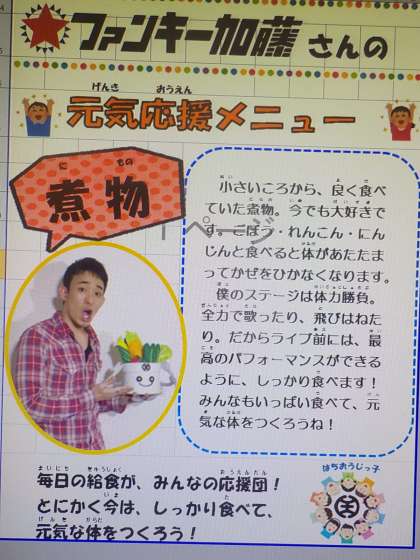 ファンキー加藤さんの
元気応援メニュー
煮物
小さいころから、良く食べ
ていた煮物。今でも大好きで
す。ごぼう・れんこん・にん
じんと食べると体があたたま
ってかぜをひかなくなります。
僕のステージは体力勝負。
全力で歌ったり、飛びはねた
り。だからライブ前には、最
高のパフォーマンスができる
ように、しっかり食べます！
みんなもいっぱい食べて、元
気な体をつくろうね！
毎日の給食が、みんなの応援団！
とにかく今は、しっかり食べて、
元気な体をつくろう！
はちおうじっ子